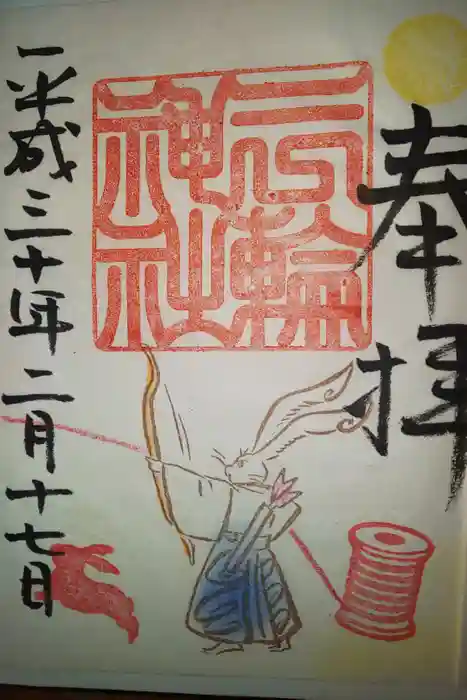 奉拝
三輪神社
平成三十年二月十七日